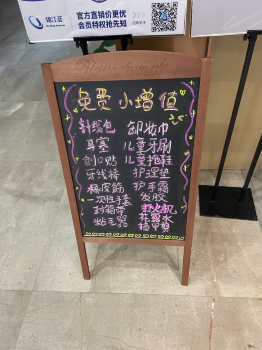 锦江荟
官方直销价更优
会员特权抢先知
免费小增值
针线包 卸妆巾
耳塞 儿童牙刷
创口贴 儿童拖鞋
牙线棒 护理垫
橡皮筋 护手霜
一次性手套 发胶
封箱带 打火机
粘毛器 花露水
指甲剪